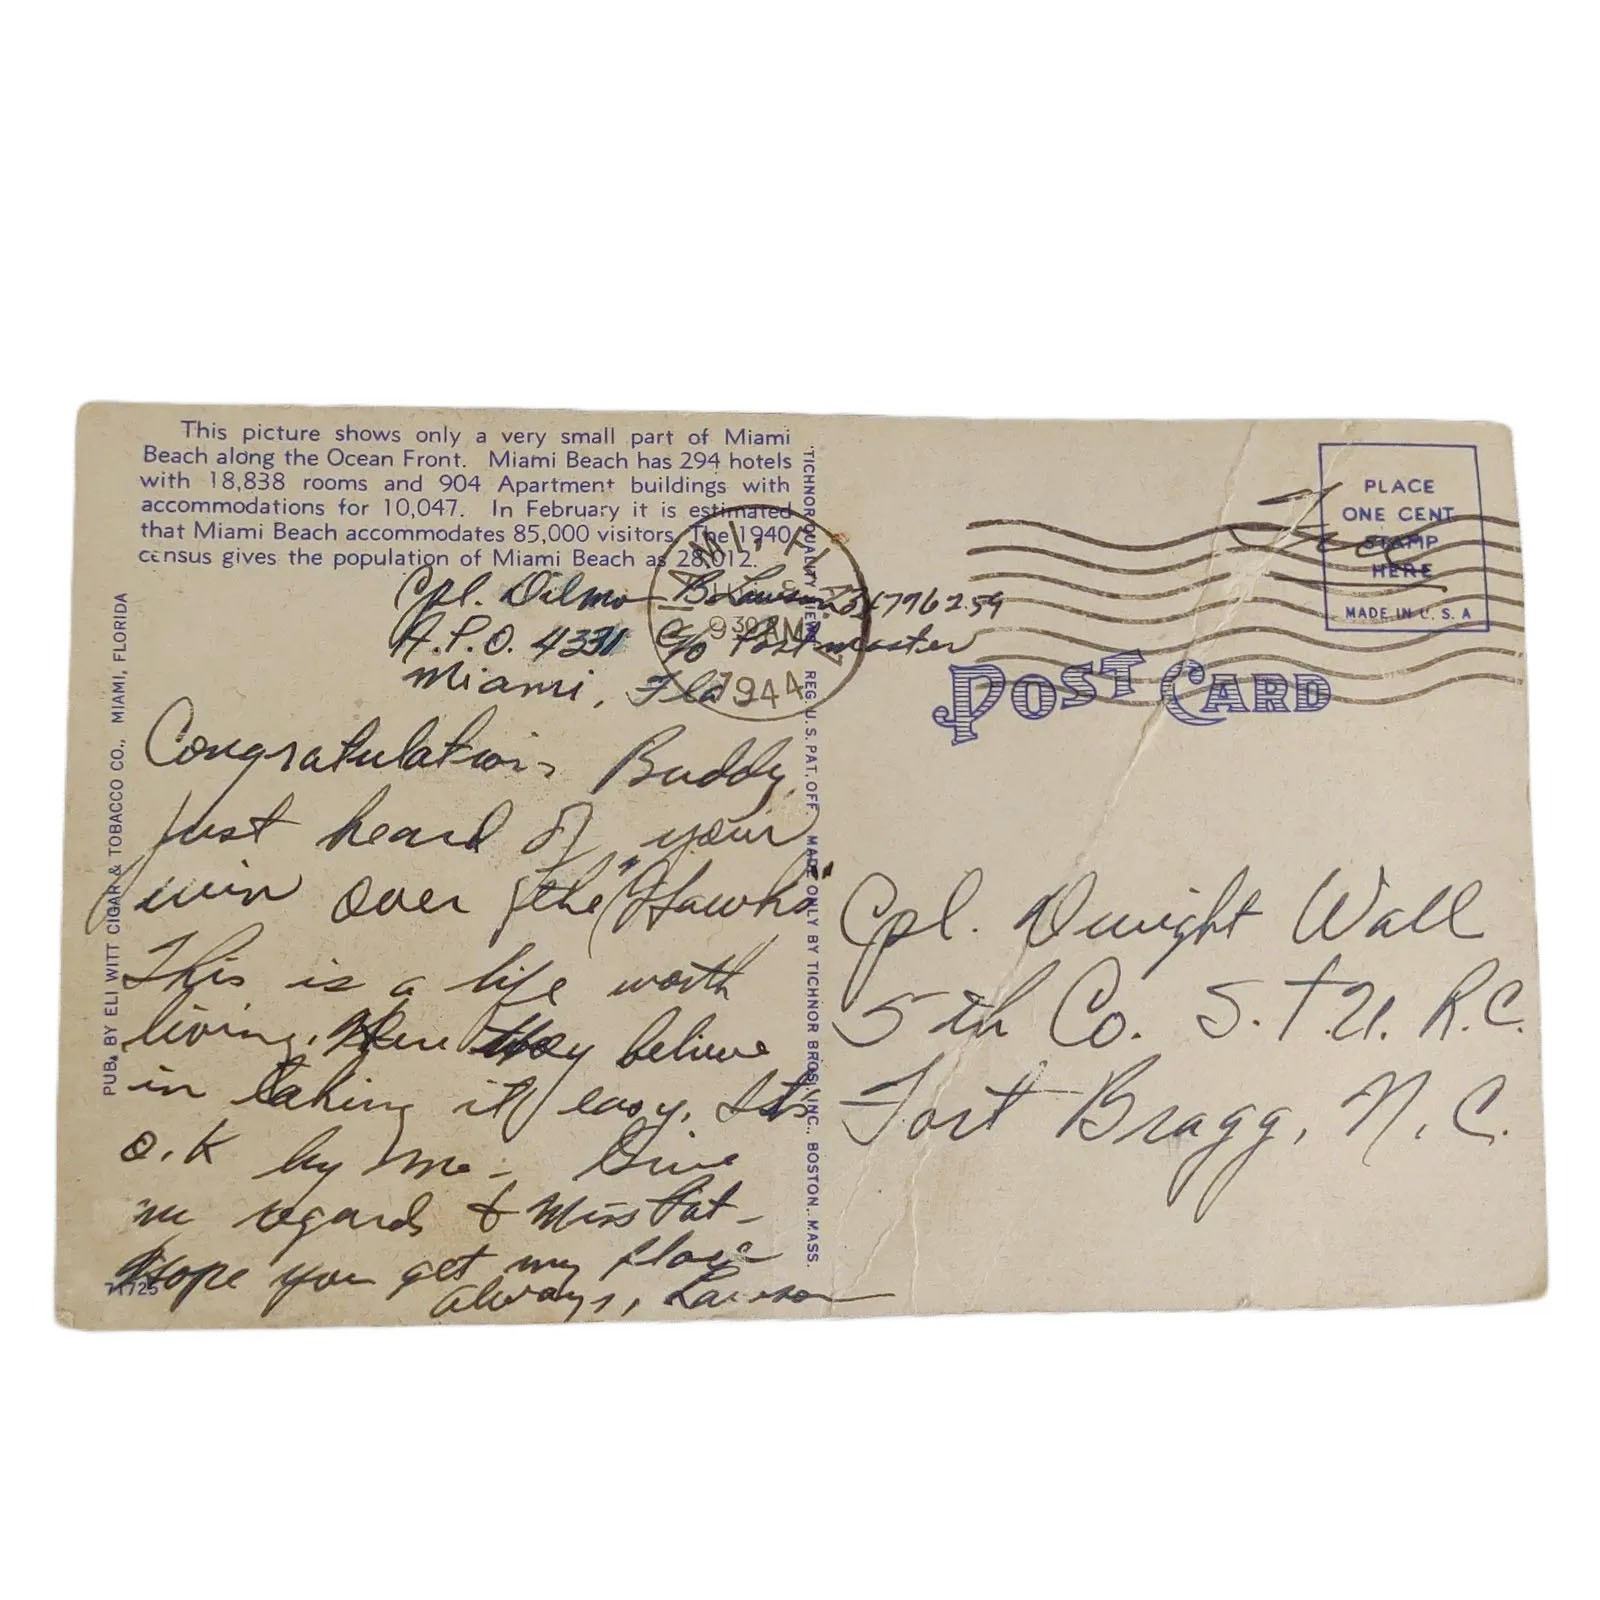 This picture shows only a very small part of Miami
Beach along the Ocean Front. Miami Beach has 294 hotels
with 18,838 rooms and 904 Apartment buildings with
accommodations for 10,047. In February it is estimated
that Miami Beach accommodates 85,000 visitors. The 1940
census gives the population of Miami Beach as 28,012.
Cpl. Dilmo B. Lawson
A.P.O. c/o Postmaster
Miami, Fla
Congratulations Buddy,
just heard of your
win over the "Hawks"
This is a life worth
living. Here they believe
in taking it easy. It's
O.K by me - Give
my regards to Miss Pat -
Hope you get my place
Always, Lawson
71725
PUB. BY ELI WITT CIGAR & TOBACCO CO., MIAMI, FLORIDA
TICHNOR QUALITY VIEWS, REG. U.S. PAT. OFF. MADE ONLY BY TICHNOR BROS., INC., BOSTON, MASS.
MIAMI, FLA.
9 30 AM
1944
Free
PLACE
ONE CENT
STAMP
HERE
MADE IN U.S.A
POST CARD
Cpl. Dwight Wall
5th Co. S.T.U. R.C.
Fort Bragg, N.C.